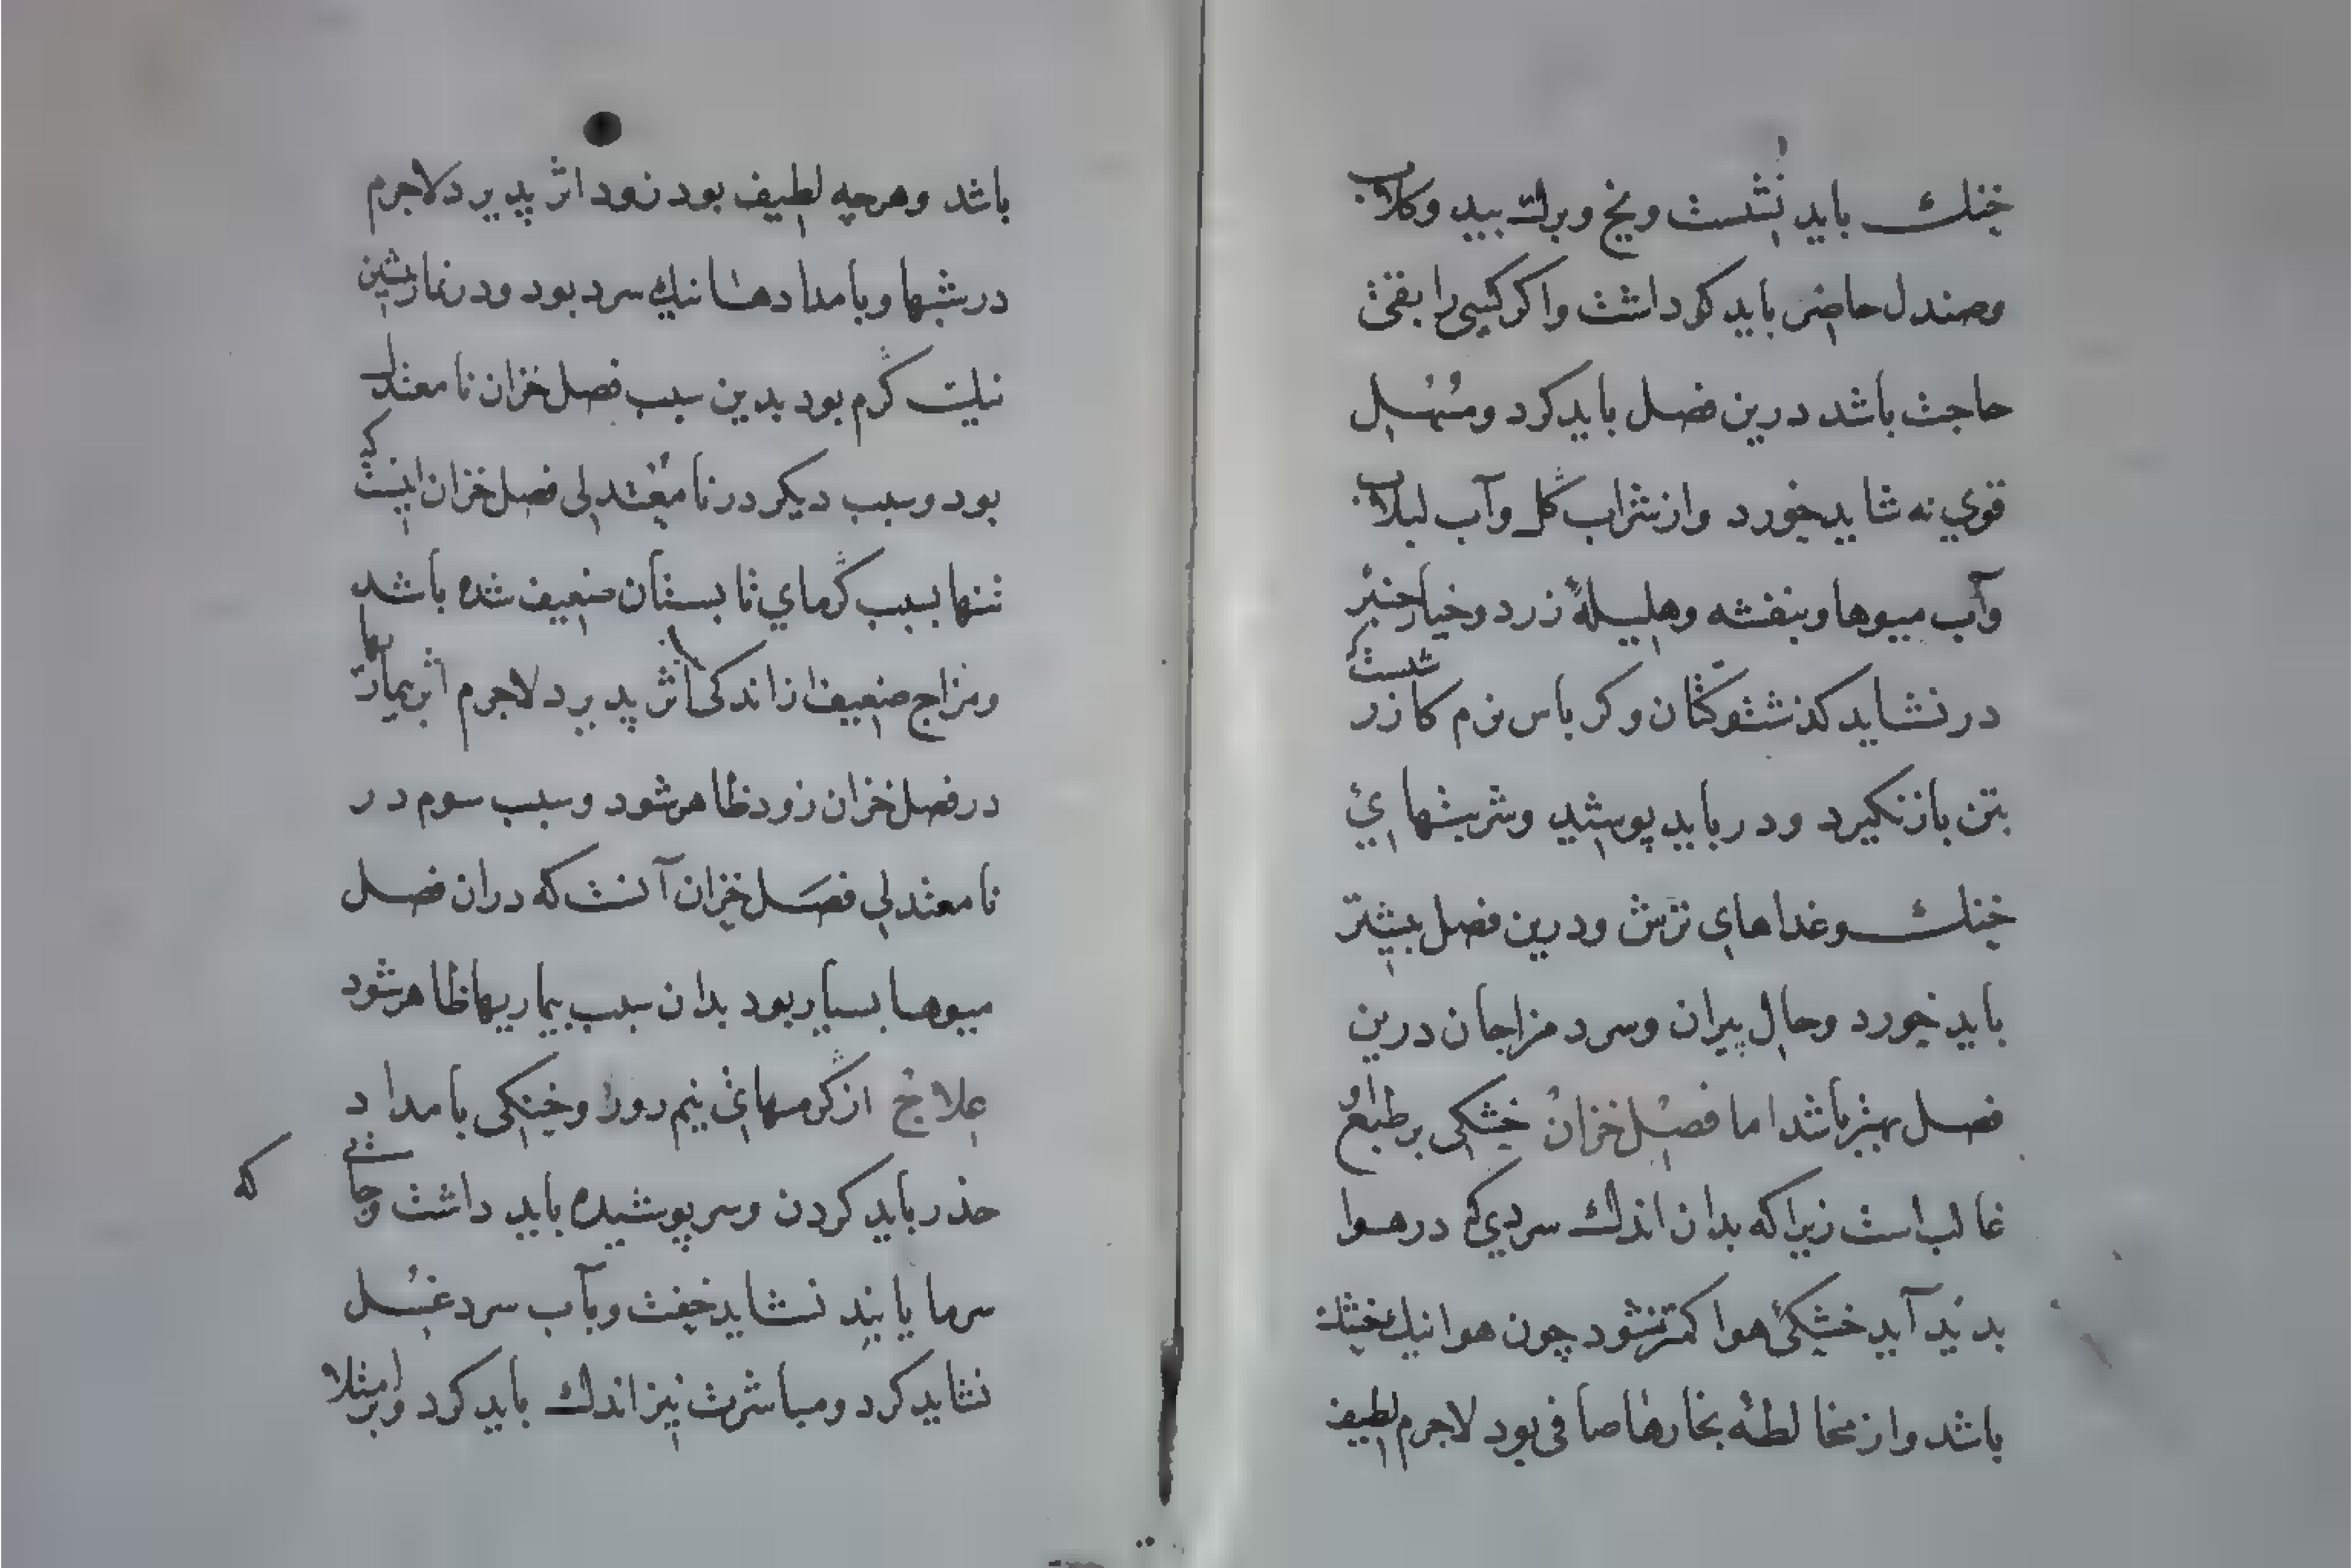 خنك باید نشست ویخ وبرك بید وکلاب
وصندل حاضر باید کرد داشت واکر کسی را بقی
حاجت باشد درین فصل باید کرد ومسهل
قوی نه شاید خورد واز شراب کل وآب لبلاب
وآب میوها وبنفشه وهلیلهٔ زرد وخیارخنبر
در نشاید کذشت وکتان وکرباس نرم کازر شست که
بتن بازنکیرد ودر باید پوشید وشربتهای
خنك وغداهای ترش ودرین فصل بیشتر
باید خورد وحال پیران وسرد مزاجان درین
فصل بهتر باشد اما فصل خزان خشکی بر طبع او
غالب است زیرا که بدان اندك سردی که در هوا
بدید آید خشکی هوا کمتر نشود چون هوا نیك خشك
باشد واز مخالطهٔ بخارها صافی بود لاجرم لطیف
باشد وهرچه لطیف بود زود اثر پدیرد لاجرم
در شبها وبامدادها نیك سرد بود ودر نماز پشین
نیك کرم بود بدین سبب فصل خزان نامعتدل
بود وسبب دیکر در نامعتدلی فصل خزان اینست که
تنها بسبب کرمای تابستان ضعیف شده باشد
ومزاج ضعیف از اندکی اثر پدیرد لاجرم اثر بیماریها
در فصل خزان زود ظاهر شود وسبب سوم در
نامعتدلی فصل خزان آنست که دران فصل
میوها بسیار بود بدان سبب بیماریها ظاهر شود
علاج از کرمهای نیم روز وخنکی بامداد
حذر باید کردن وسر پوشیده باید داشت وجائی که
سرما یابند نشاید خفت وبآب سرد غسل
نشاید کرد ومباشرت نیز اندك باید کرد وبر امتلا